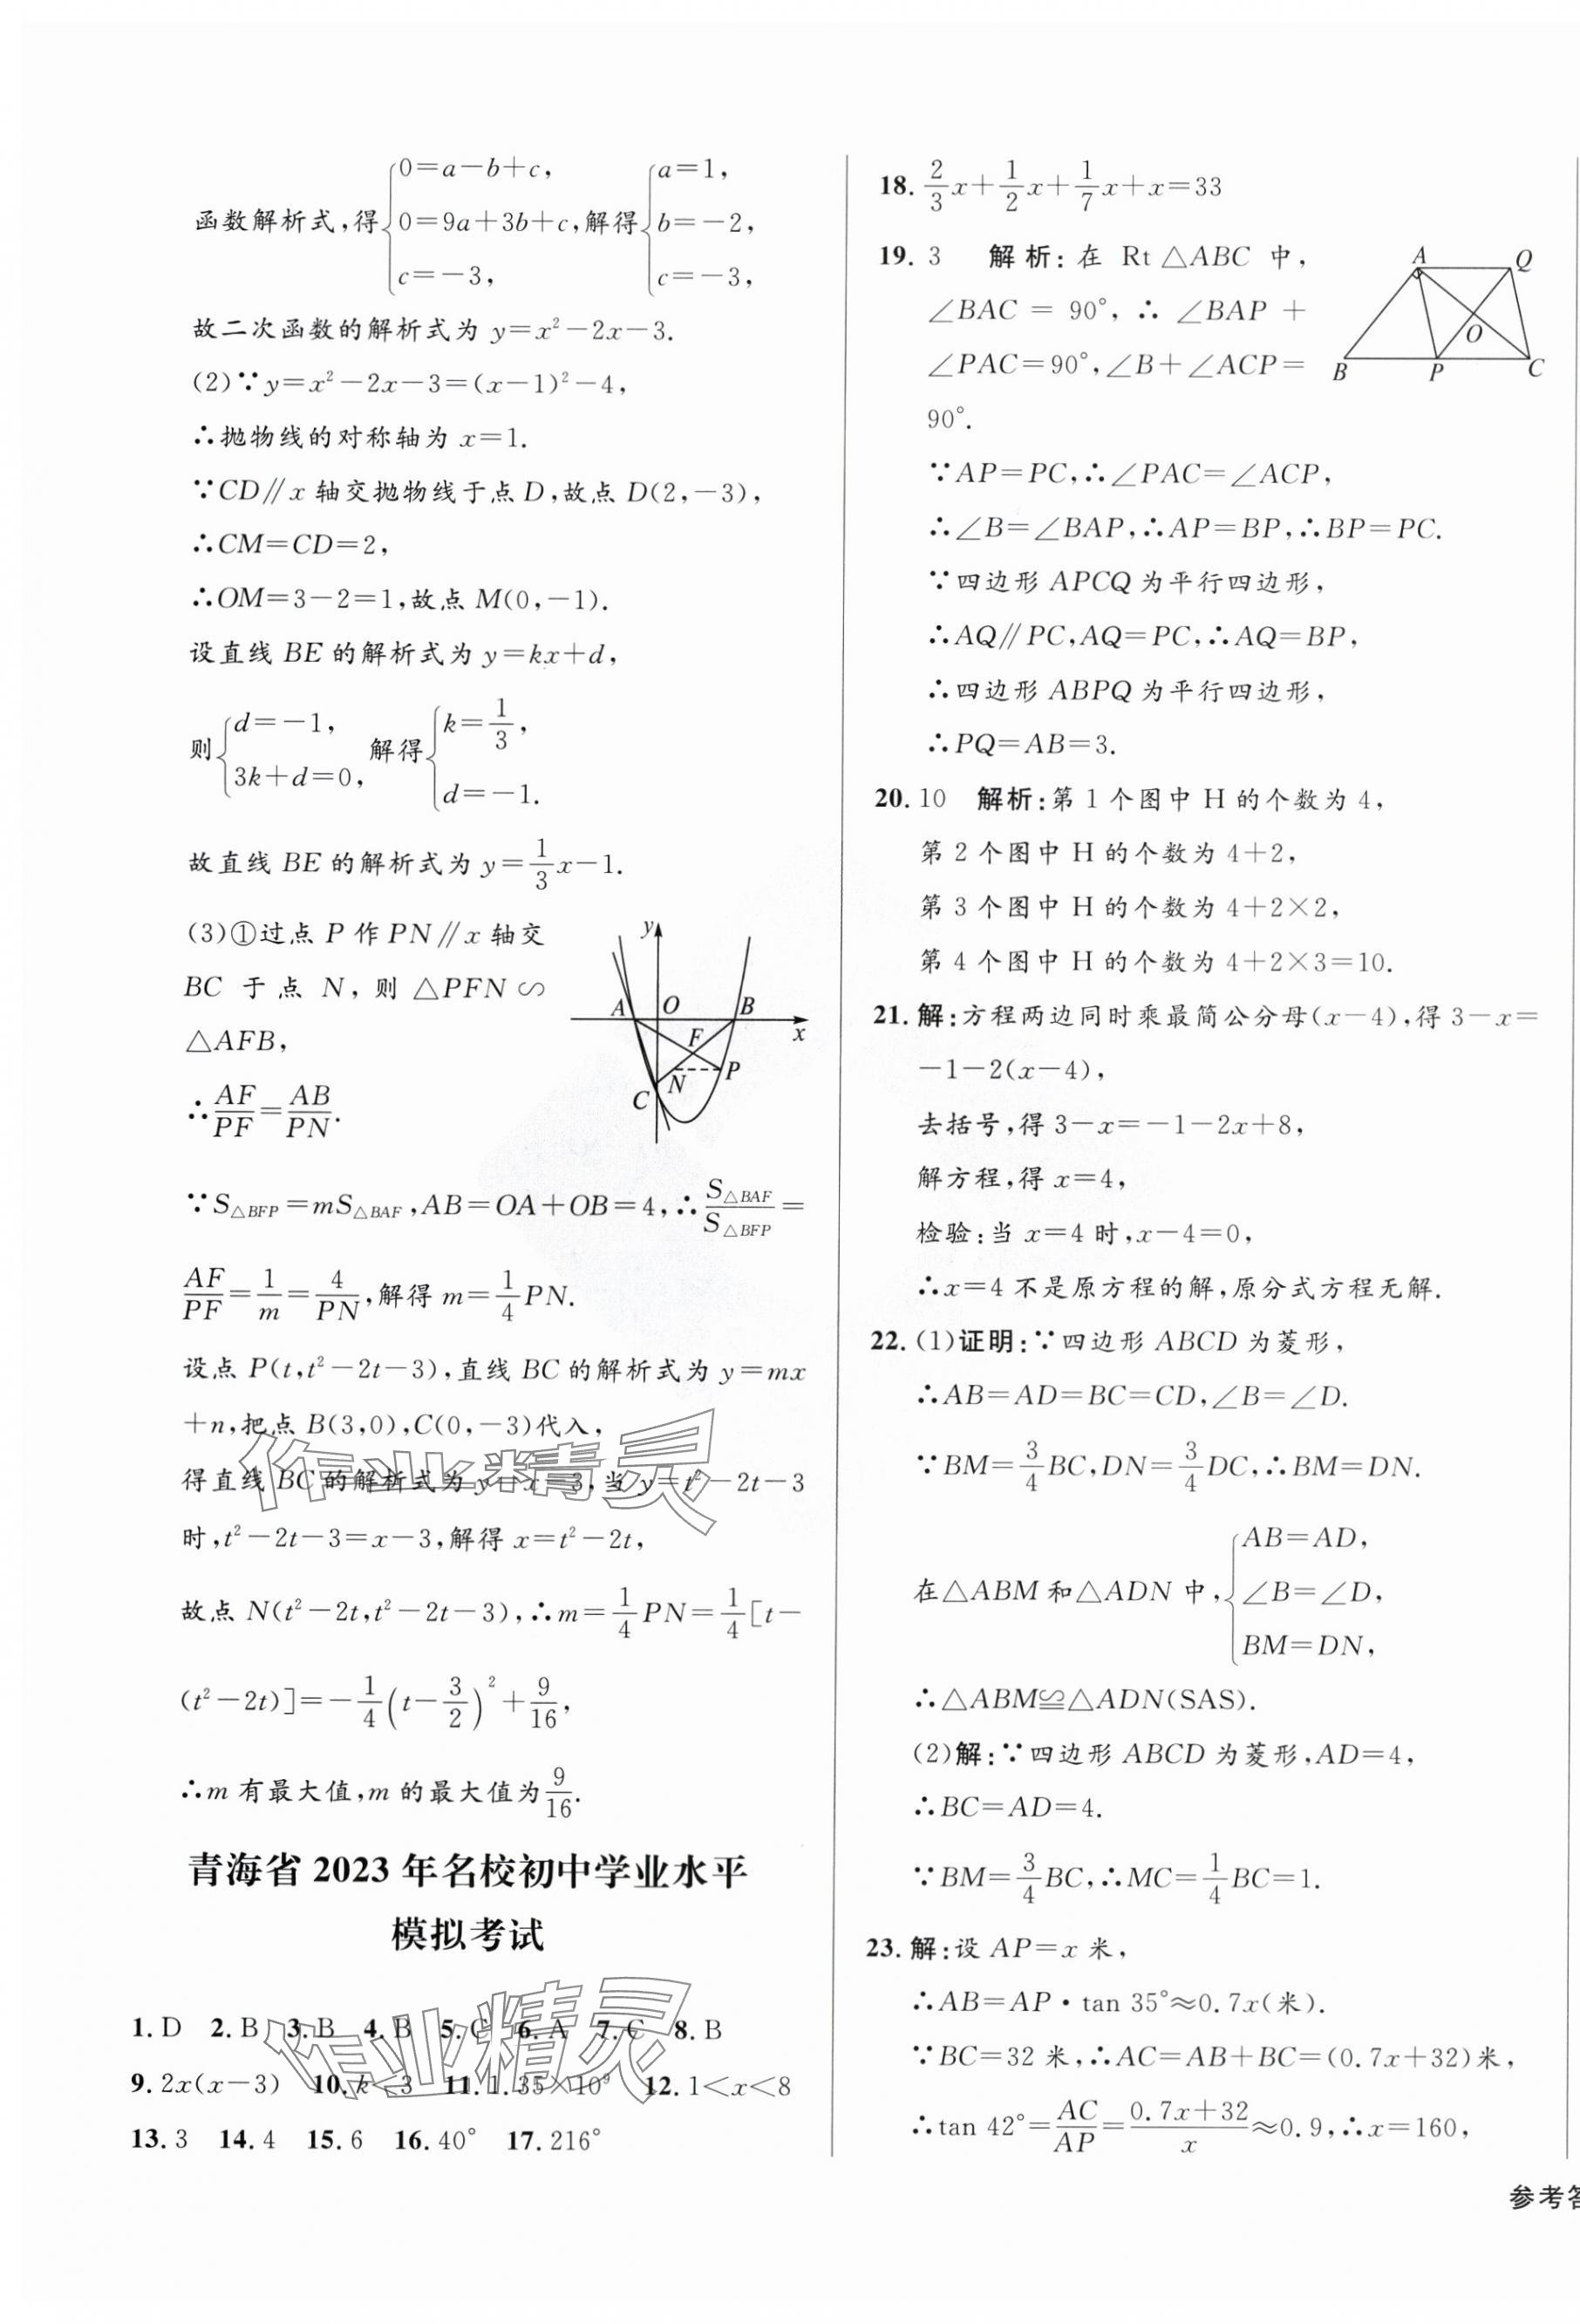 函数解析式,得{0=a-b+c, 0=9a+3b+c, c=-3, 解得{a=1, b=-2, c=-3,
故二次函数的解析式为 y=x²-2x-3.
(2)∵y=x²-2x-3=(x-1)²-4,
∴抛物线的对称轴为 x=1.
∵CD∥x 轴交抛物线于点 D,故点 D(2,-3),
∴CM=CD=2,
∴OM=3-2=1,故点 M(0,-1).
设直线 BE 的解析式为 y=kx+d,
则{d=-1, 3k+d=0, 解得{k=1/3, d=-1.
故直线 BE 的解析式为 y=1/3x-1.
(3)①过点 P 作 PN∥x 轴交
BC 于点 N, 则 △PFN∽
△AFB,
∴AF/PF=AB/PN.
y
A
O
B
x
F
N
P
C
∵S△BFP=mS△BAF,AB=OA+OB=4,∴S△BAF/S△BFP=
AF/PF=1/m=4/PN,解得 m=1/4PN.
设点 P(t,t²-2t-3),直线 BC 的解析式为 y=mx
+n,把点 B(3,0),C(0,-3)代入,
得直线 BC 的解析式为 y=x-3,当 y=t²-2t-3
时,t²-2t-3=x-3,解得 x=t²-2t,
故点 N(t²-2t,t²-2t-3),∴m=1/4PN=1/4[t-
(t²-2t)]=-1/4(t-3/2)²+9/16,
∴m 有最大值,m 的最大值为9/16.
青海省 2023 年名校初中学业水平
模拟考试
1.D 2.B 3.B 4.B 5.C 6.A 7.C 8.B
9.2x(x-3) 10.k<3 11.1.35×10⁹ 12.1<x<8
13.3 14.4 15.6 16.40° 17.216°
作业精灵
作业精灵
18.2/3x+1/2x+1/7x+x=33
19.3 解析:在 Rt△ABC 中,
∠BAC = 90°, ∴ ∠BAP +
∠PAC=90°,∠B+∠ACP=
90°.
A
Q
O
B
P
C
∵AP=PC,∴∠PAC=∠ACP,
∴∠B=∠BAP,∴AP=BP,∴BP=PC.
∵四边形 APCQ 为平行四边形,
∴AQ∥PC,AQ=PC,∴AQ=BP,
∴四边形 ABPQ 为平行四边形,
∴PQ=AB=3.
20.10 解析:第 1 个图中 H 的个数为 4,
第 2 个图中 H 的个数为 4+2,
第 3 个图中 H 的个数为 4+2×2,
第 4 个图中 H 的个数为 4+2×3=10.
21.解:方程两边同时乘最简公分母(x-4),得 3-x=
-1-2(x-4),
去括号,得 3-x=-1-2x+8,
解方程,得 x=4,
检验:当 x=4 时,x-4=0,
∴x=4 不是原方程的解,原分式方程无解.
22.(1)证明:∵四边形 ABCD 为菱形,
∴AB=AD=BC=CD,∠B=∠D.
∵BM=3/4BC,DN=3/4DC,∴BM=DN.
在△ABM 和△ADN 中,{AB=AD, ∠B=∠D, BM=DN,
∴△ABM≌△ADN(SAS).
(2)解:∵四边形 ABCD 为菱形,AD=4,
∴BC=AD=4.
∵BM=3/4BC,∴MC=1/4BC=1.
23.解:设 AP=x 米,
∴AB=AP·tan 35°≈0.7x(米).
∵BC=32 米,∴AC=AB+BC=(0.7x+32)米,
∴tan 42°=AC/AP=0.7x+32/x≈0.9,∴x=160,
参考答